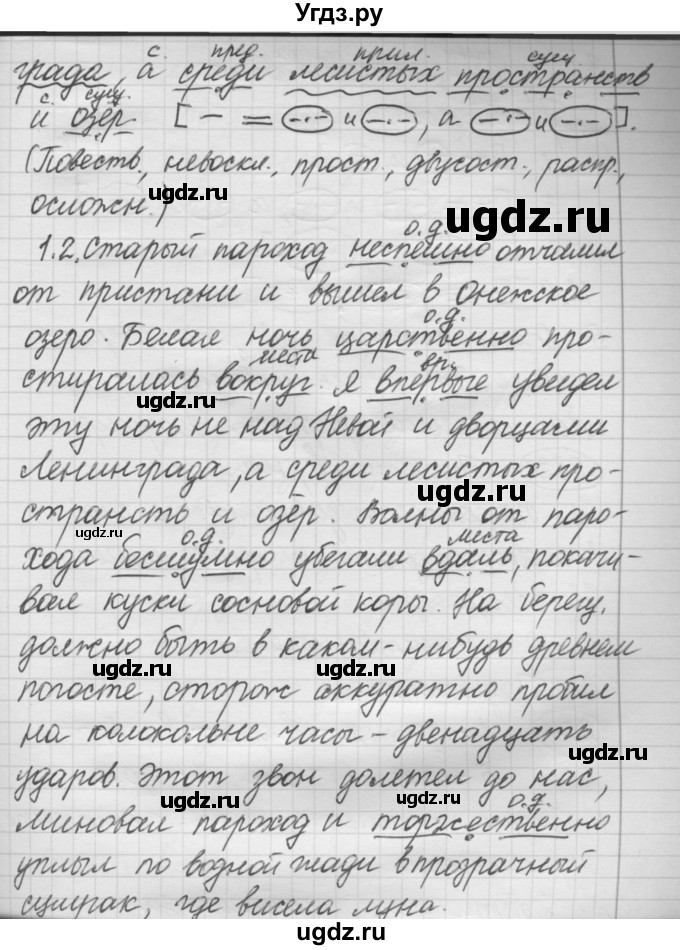 Угдз.ру
с. пред. прил. сущ.
града, а среди лесистых пространств
с. сущ.
и озёр [— = —·— и —·—, а —·— и —·—].
(Повеств., невоскл., прост., двусост., распр.,
ugdz.ru
осложн.)
ugdz.ru
о.д.
1.2. Старый пароход неспешно отчалил
от пристани и вышел в Онежское
о.д.
озеро. Белая ночь царственно про-
места вр.
стиралась вокруг. Я впервые увидел
ugdz.ru
ugdz.ru
эту ночь не над Невой и дворцами
Ленинграда, а среди лесистых про-
ugdz.ru
странств и озёр. Волны от паро-
ugdz.ru
о.д. места
хода бесшумно убегали вдаль, покачи-
вая куски сосновой коры. На берегу,
должно быть в каком-нибудь древнем
ugdz.ru
погосте, сторож аккуратно пробил
на колокольне часы – двенадцать
ugdz.ru
ударов. Этот звон долетел до нас,
ugdz.ru
ugdz.ru
о.д.
миновал пароход и торжественно
уплыл по водной глади в прозрачный
сумрак, где висела луна.
ugdz.ru